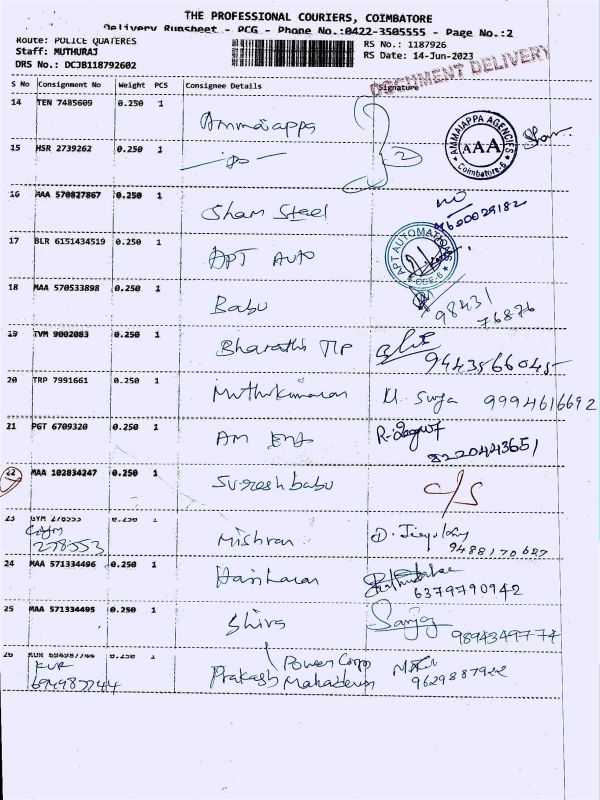 THE PROFESSIONAL COURIERS, COIMBATORE
Delivery Runsheet - PCG - Phone No.:0422-3505555 - Page No.:2
Route: POLICE QUATERES
RS No.: 1187926
Staff: MUTHURAJ
RS Date: 14-Jun-2023
DRS No.: DCJB118792602
DOCUMENT DELIVERY
S No Consignment No Weight PCS Consignee Details Signature
14 TEN 7485609 0.250 1 Ammaiappa
AMMAIAPPA AGENCIES AAA Coimbatore-6
15 HSR 2739262 0.250 1
2
16 MAA 570827867 0.250 1 Sham Steel
9600029182
17 BLR 6151434519 0.250 1 APT AUTO
APT AUTOMATION
18 MAA 570533898 0.250 1 Babu
98431
76876
19 TVM 9002003 0.250 1 Bharathi TLP
9443566045
20 TRP 7991661 0.250 1 Muthukumaran M. Surya 9994616692
21 PGT 6709320 0.250 1 AM Eng
8220443651
22 MAA 102834247 0.250 1 Sureshbabu C/S
23 GYM 278553 0.250 1 Mishran
278553
9488170687
24 MAA 571334496 0.250 1 Hariharan
6379790942
25 MAA 571334495 0.250 1 Shiva Sanjay
9894349774
26 KUR 694987744 0.250 1 Prakash Power Corp
KUR
694987744 Mahadevan
9629887922